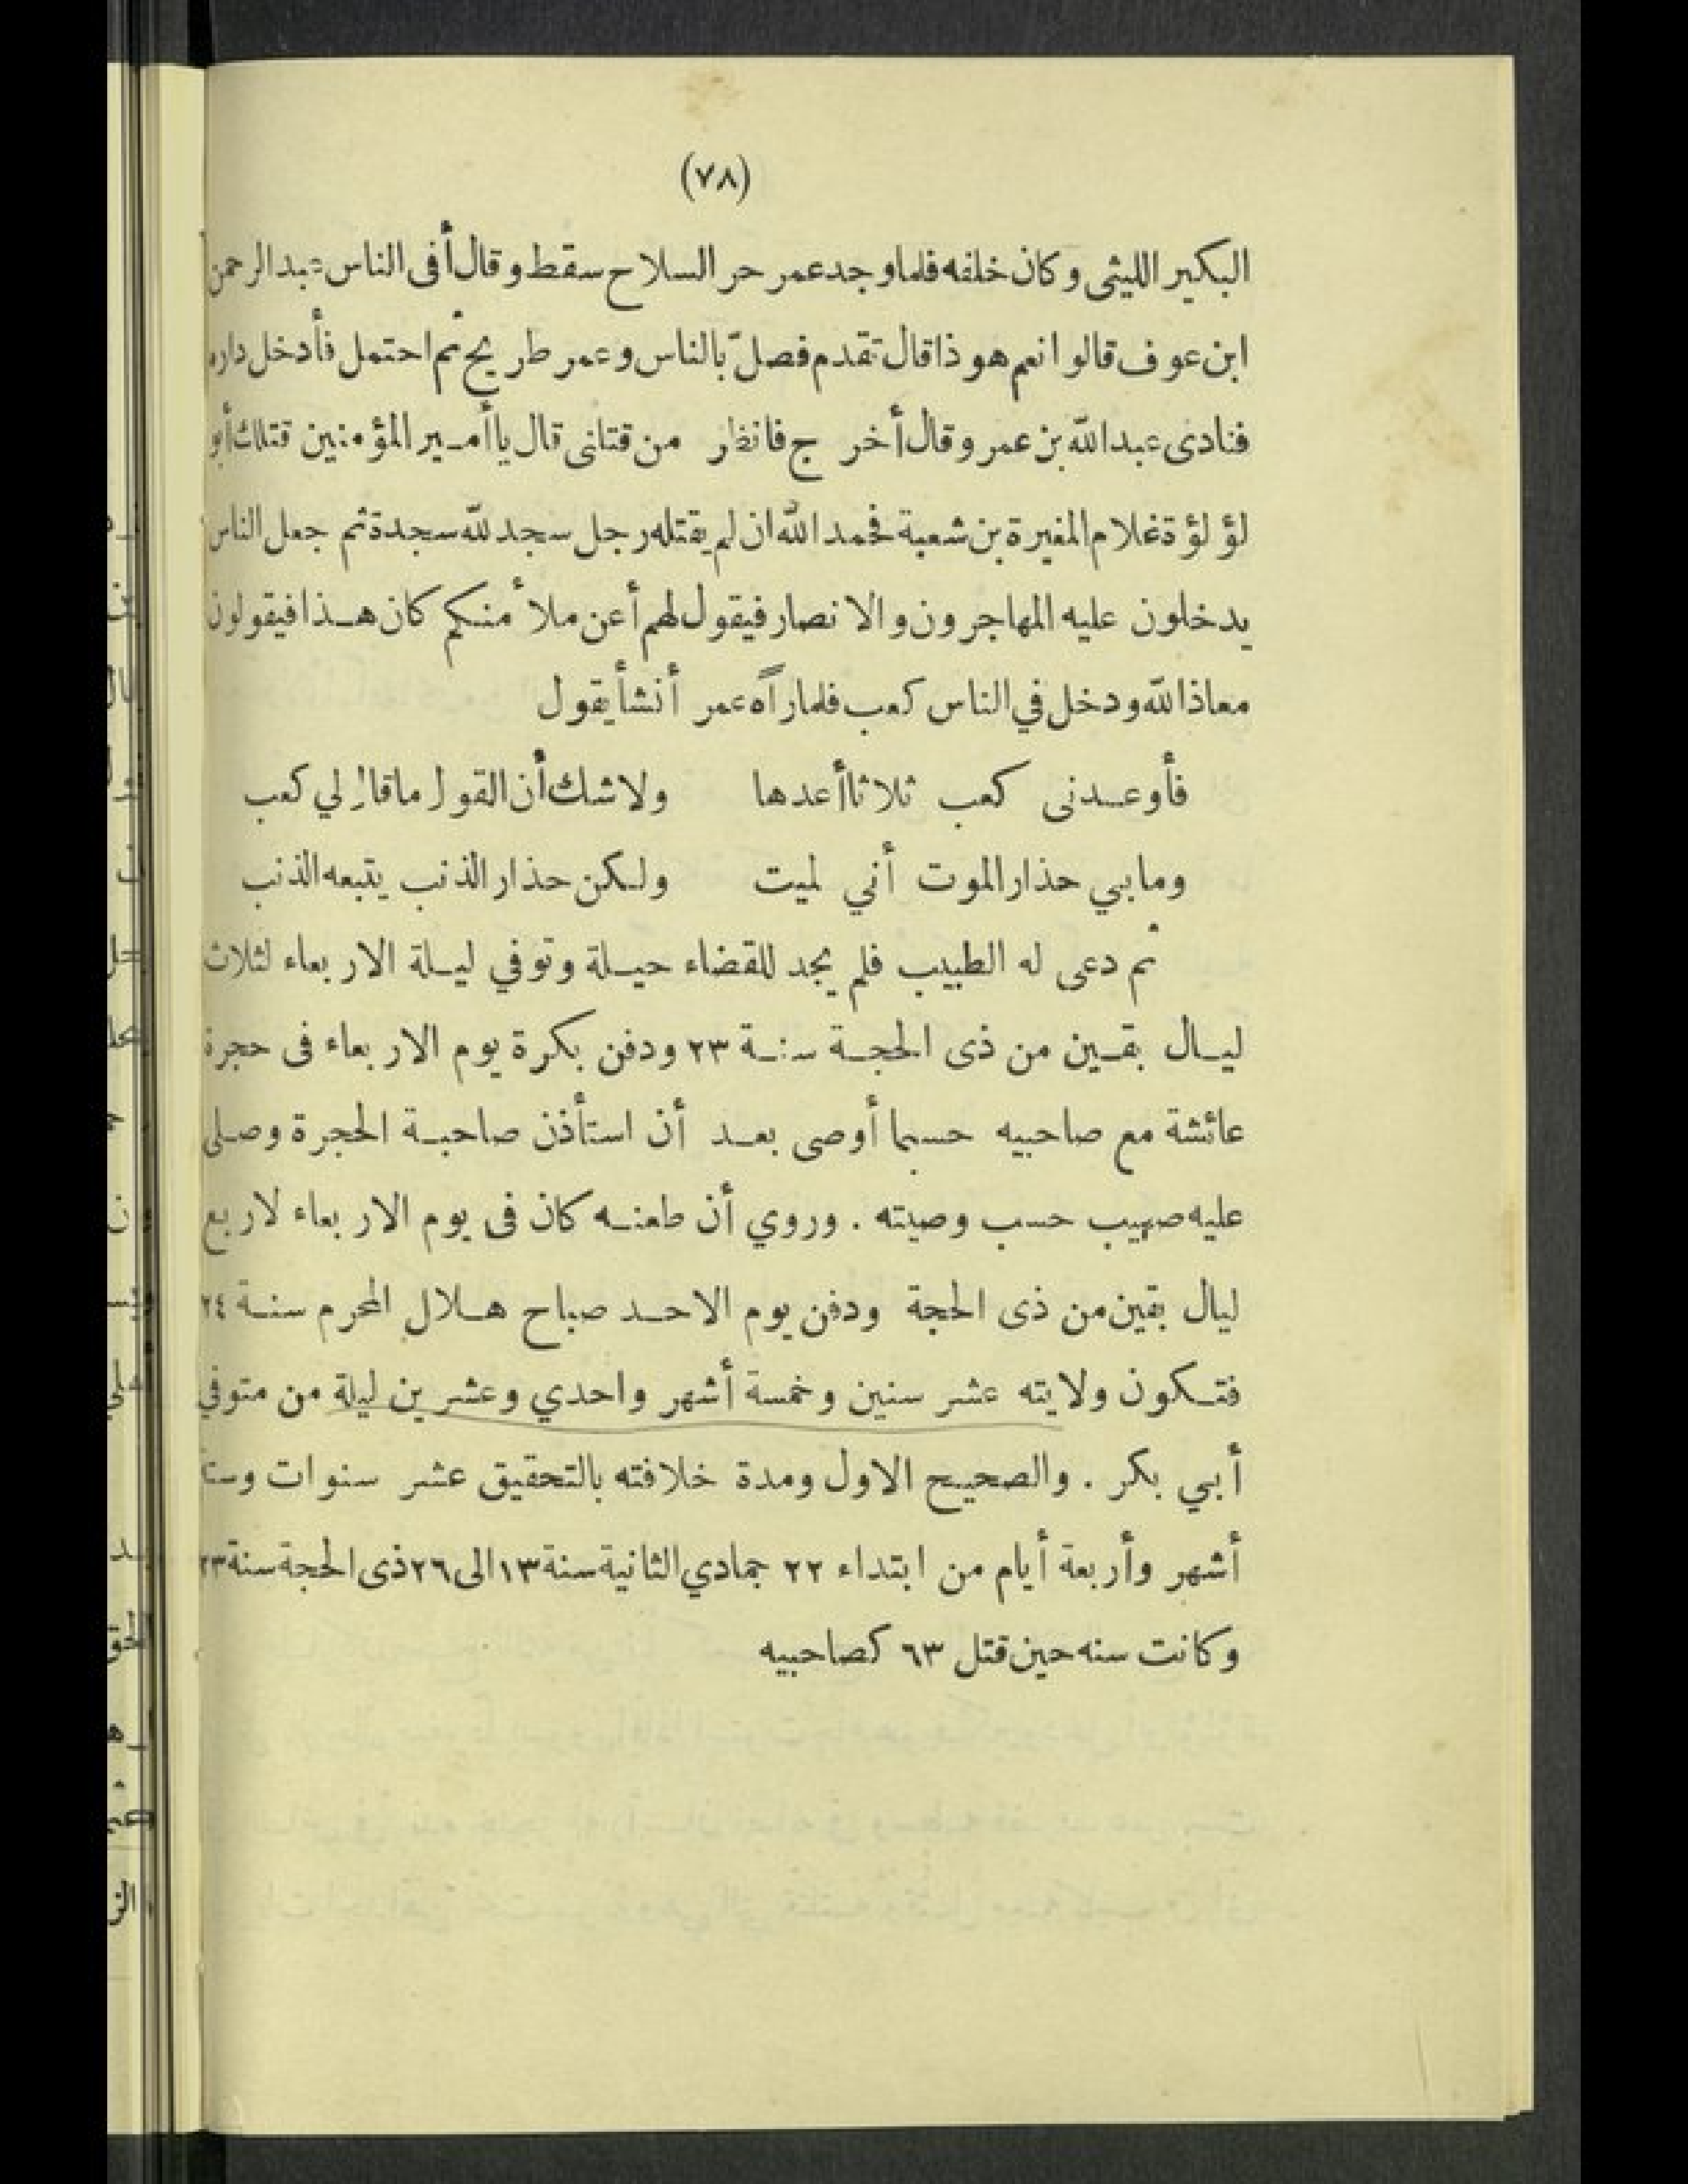 (٧٨)
البكير الليثى وكان خلفه فلما وجد عمر حر السلاح سقط وقال أفى الناس عبد الرحمن
ابن عوف قالوا نعم هو ذا قال تقدم فصلّ بالناس وعمر طريح ثم احتمل فأدخل داره
فنادى عبد الله بن عمر وقال أخرج فانظر من قتلنى قال يا أمير المؤمنين قتلك أبو
لؤلؤة غلام المغيرة بن شعبة فحمد الله ان لم يقتله رجل سجد لله سجدة ثم جعل الناس
يدخلون عليه المهاجرون والانصار فيقول لهم أعن ملأ منكم كان هذا فيقولون
معاذ الله ودخل في الناس كعب فلما رآه عمر أنشأ يقول
فأوعدنى كعب ثلاثا أعدها ولا شك أن القول ما قال لي كعب
وما بي حذار الموت أني لميت ولكن حذار الذنب يتبعه الذنب
ثم دعى له الطبيب فلم يجد للقضاء حيلة وتوفي ليلة الاربعاء لثلاث
ليال بقين من ذى الحجة سنة ٢٣ ودفن بكرة يوم الاربعاء فى حجرة
عائشة مع صاحبيه حسبما أوصى بعد أن استأذن صاحبة الحجرة وصلى
عليه صهيب حسب وصيته . وروي أن طعنه كان فى يوم الاربعاء لاربع
ليال بقين من ذى الحجة ودفن يوم الاحد صباح هلال المحرم سنة ٢٤
فتكون ولايته عشر سنين وخمسة أشهر واحدي وعشرين ليلة من متوفي
أبي بكر . والصحيح الاول ومدة خلافته بالتحقيق عشر سنوات وستة
أشهر وأربعة أيام من ابتداء ٢٢ جمادي الثانية سنة ١٣ الى ٢٦ ذى الحجة سنة ٢٣
وكانت سنه حين قتل ٦٣ كصاحبيه